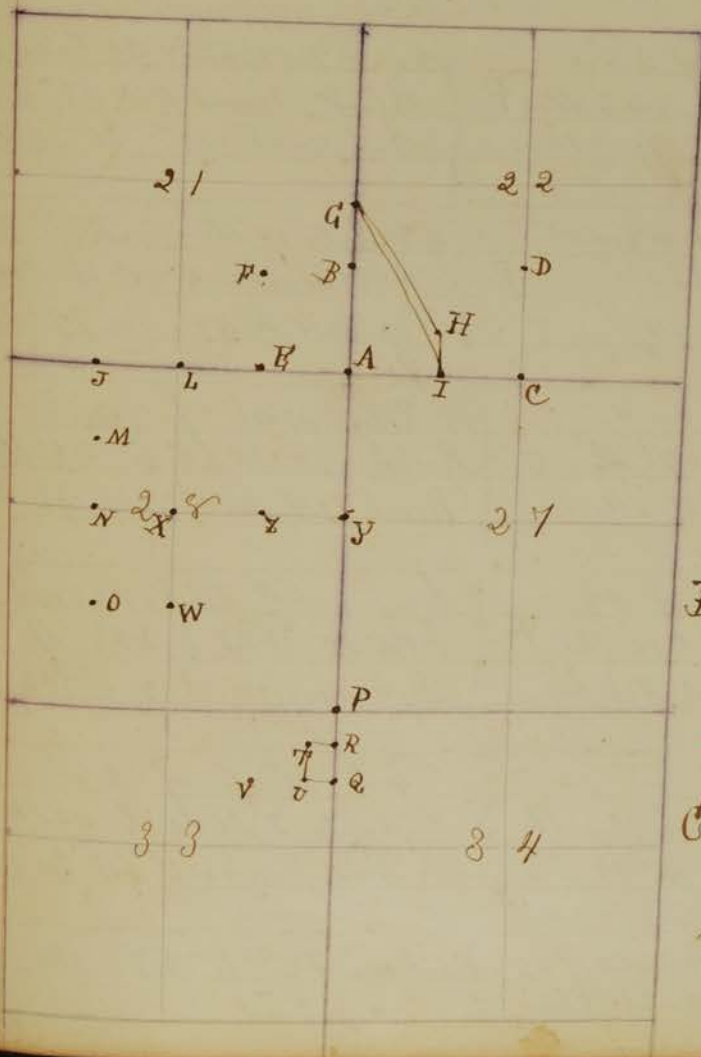 21 22
G
F B D
H
J L E A I C
M
N 28 X Z Y 27
O W
P
T R
V U Q
33 34